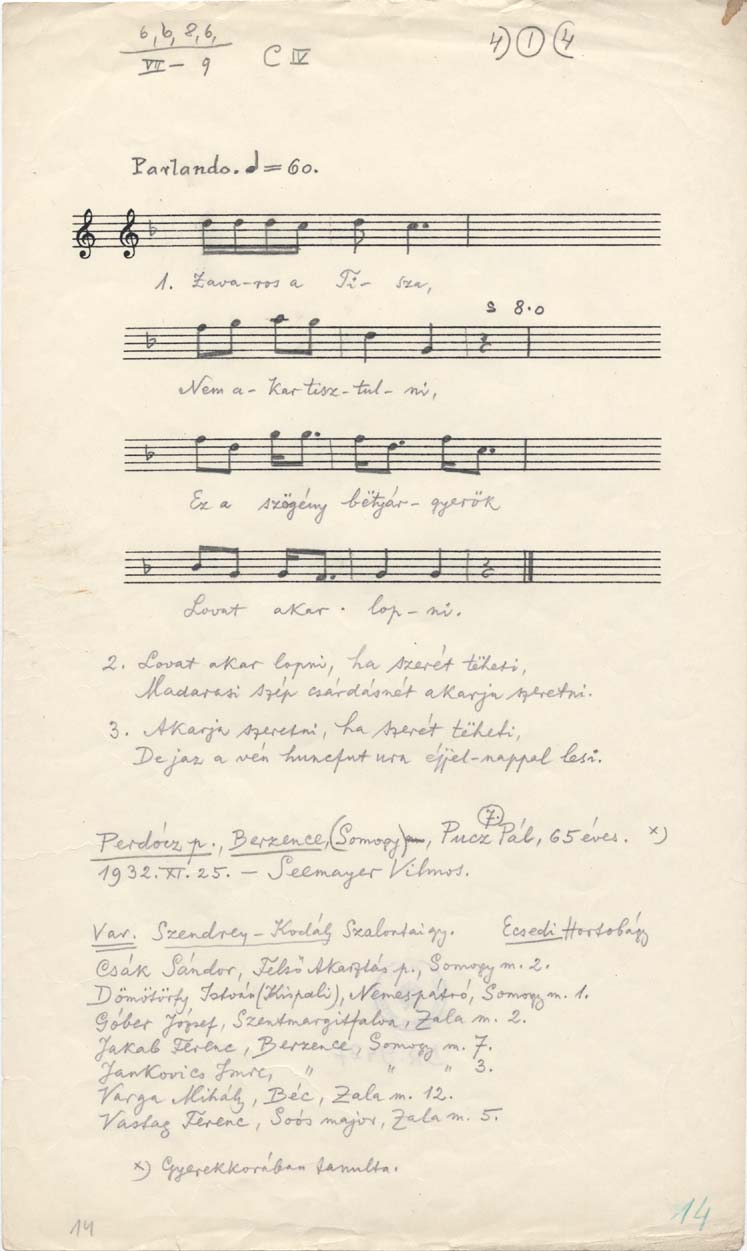 6, 6, 8, 6,
VII – 9
C IV
4) 1 (4
Parlando. ♩=60.
1. Zava-ros a Ti- sza,
s 8.0
Nem a- kar tisz-tul- ni,
Ez a szögény bëtyár- gyerök
Lovat akar lop-ni.
2. Lovat akar lopni, ha szerét tëheti,
Madarasi szép csárdásnét akarja szeretni.
3. Akarja szeretni, ha szerét tëheti,
De jaz a vén huncfut ura éjjel-nappal lesi.
7.
Perdócz p., Berzence, (Somogy), Pucz Pál, 65 éves. x)
1932. XI. 25. – Seemayer Vilmos.
Var. Szendrey – Kodály Szalontai gy. Ecsedi Hortobágy
Csák Sándor, Felső Akasztás p., Somogy m. 2.
Dömötörfy István (Kispali), Nemespátró, Somogy m. 1.
Góber József, Szentmargitfalva, Zala m. 2.
Jakab Ferenc, Berzence, Somogy m. 7.
Jankovics Imre, " " " 3.
Varga Mihály, Béc, Zala m. 12.
Vastag Ferenc, Soós major, Zala m. 5.
x) Gyerekkorában tanulta.
14
14